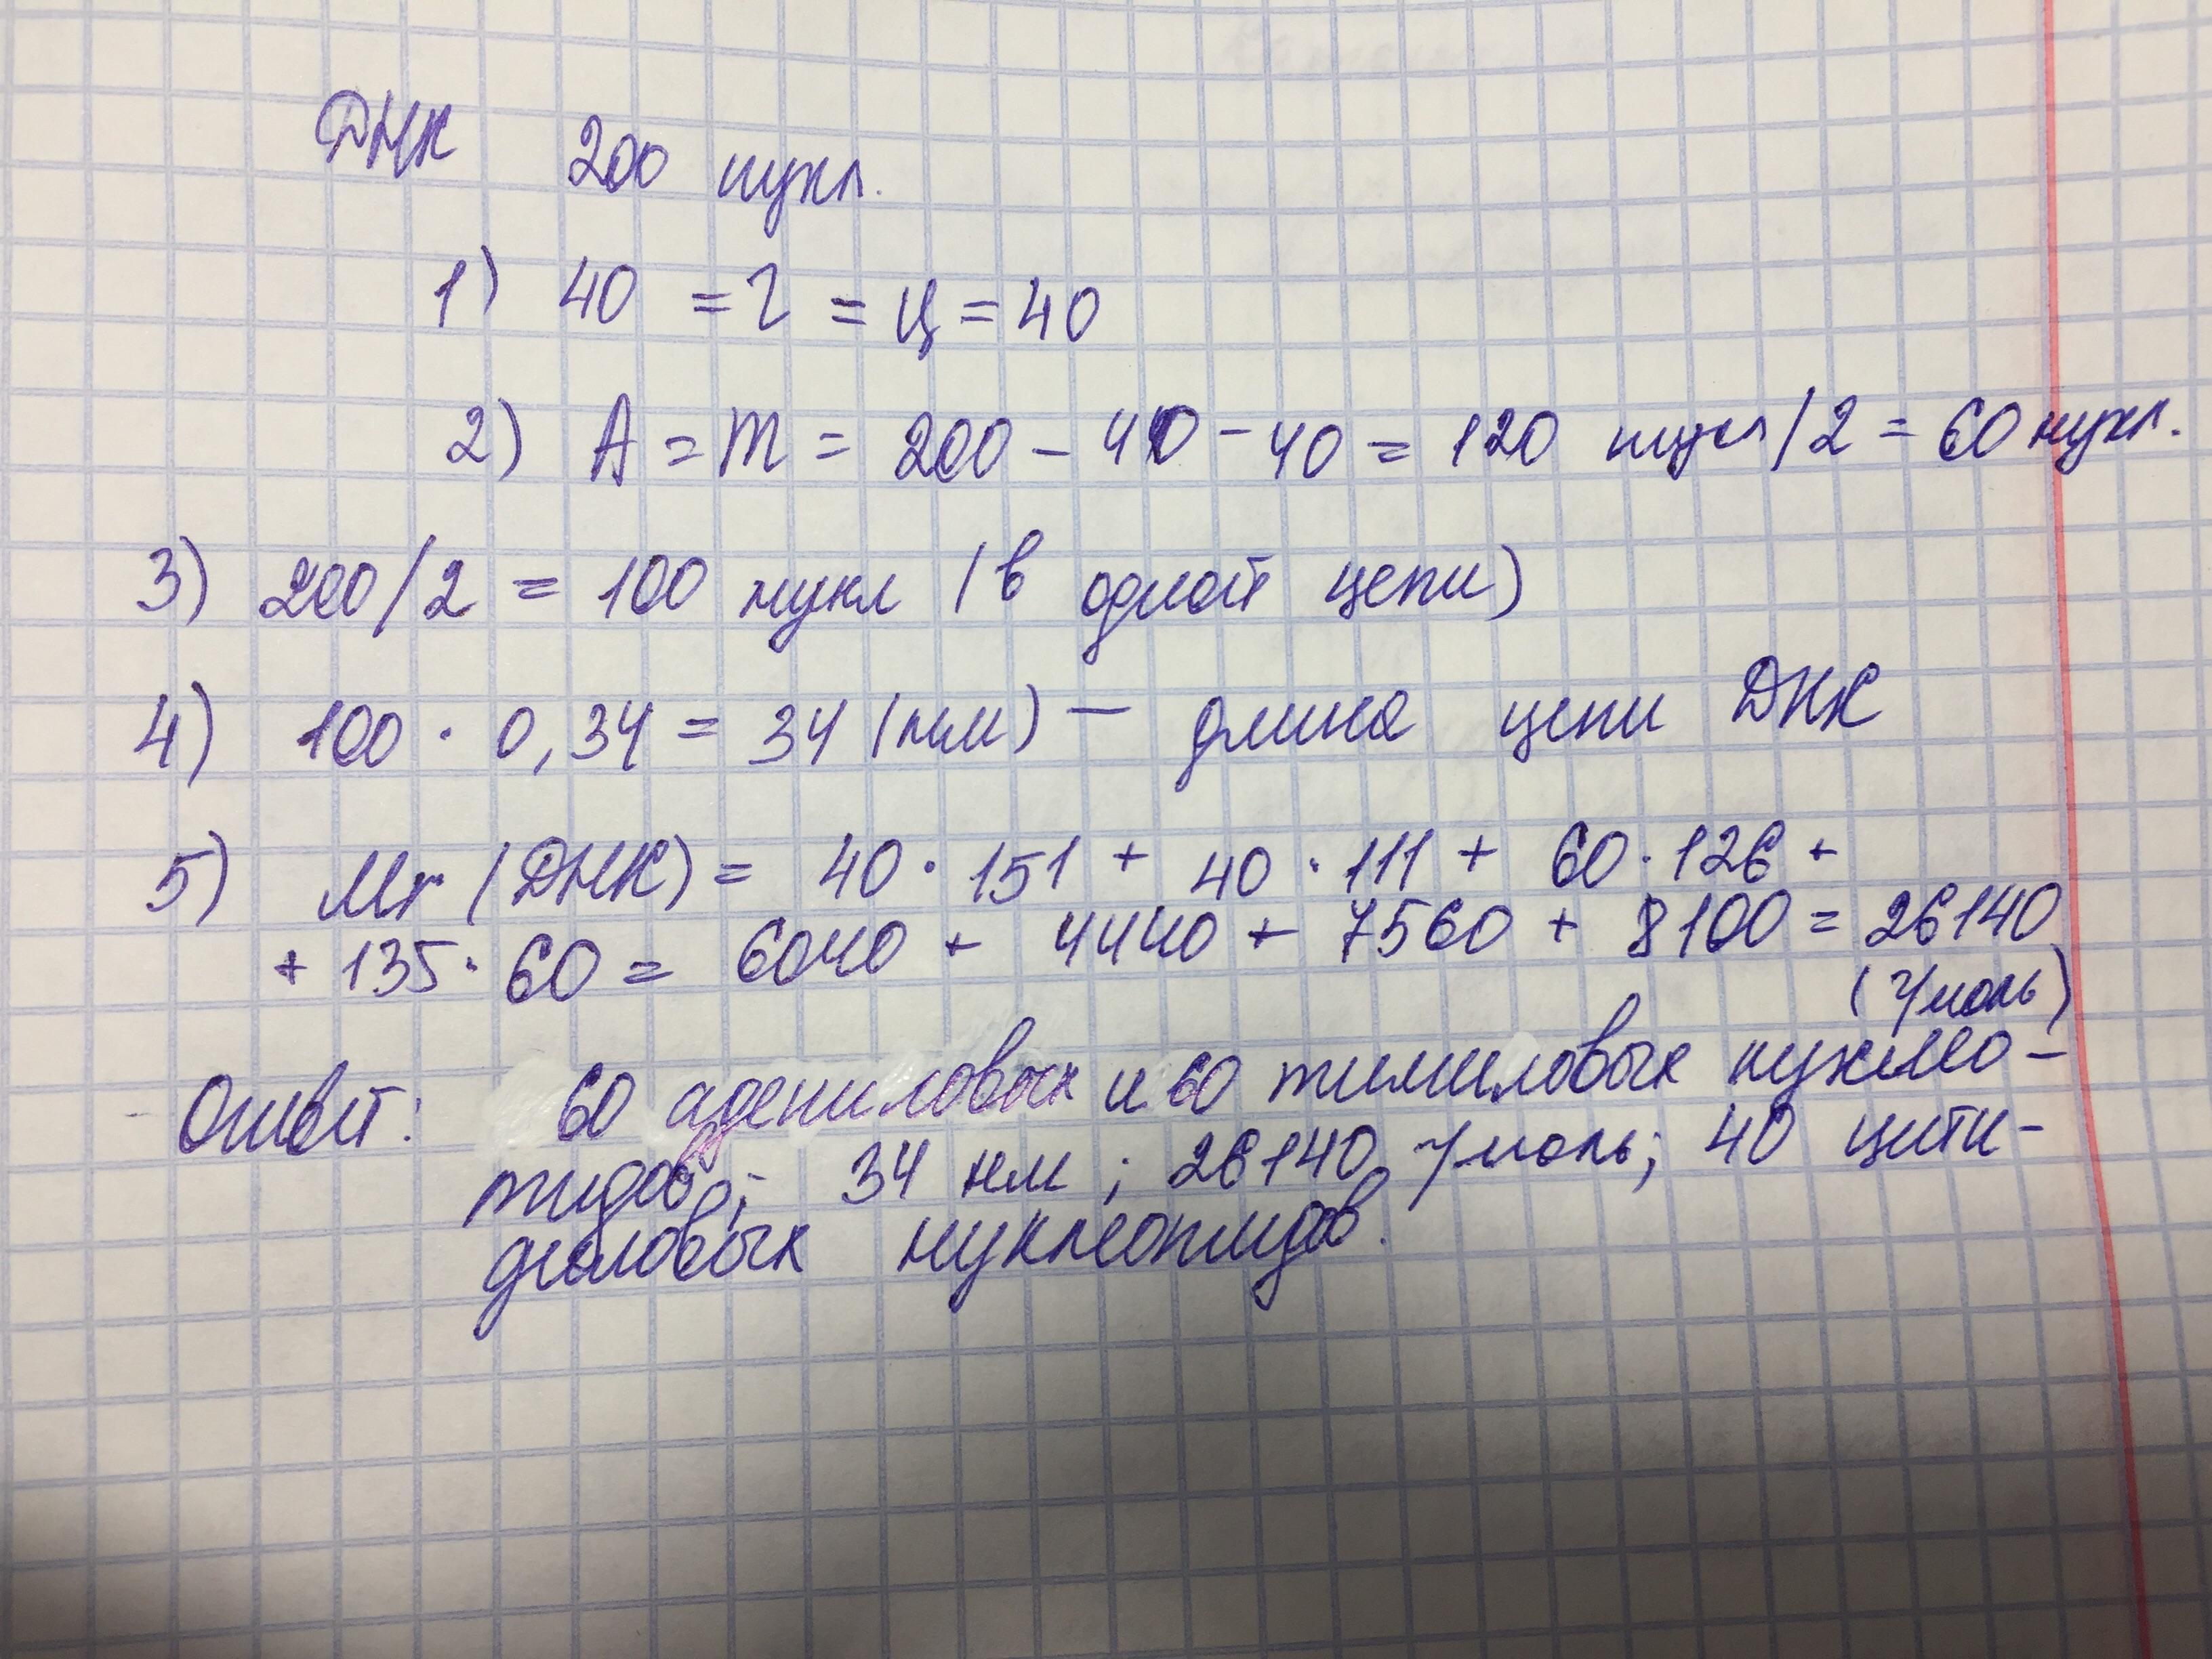 ДНК 200 нукл.
1) 40 = Г = Ц = 40
2) А = Т = 200 - 40 - 40 = 120 нукл / 2 = 60 нукл.
3) 200/2 = 100 нукл (в одной цепи)
4) 100 · 0,34 = 34 (нм) — длина цепи ДНК
5) Mr (ДНК) = 40 · 151 + 40 · 111 + 60 · 126 +
+ 135 · 60 = 6040 + 4440 + 7560 + 8100 = 26140
(г/моль)
Ответ: 60 адениловых и 60 тимиловых нуклео-
тидов; 34 нм ; 26140 г/моль; 40 цити-
диловых нуклеотидов.